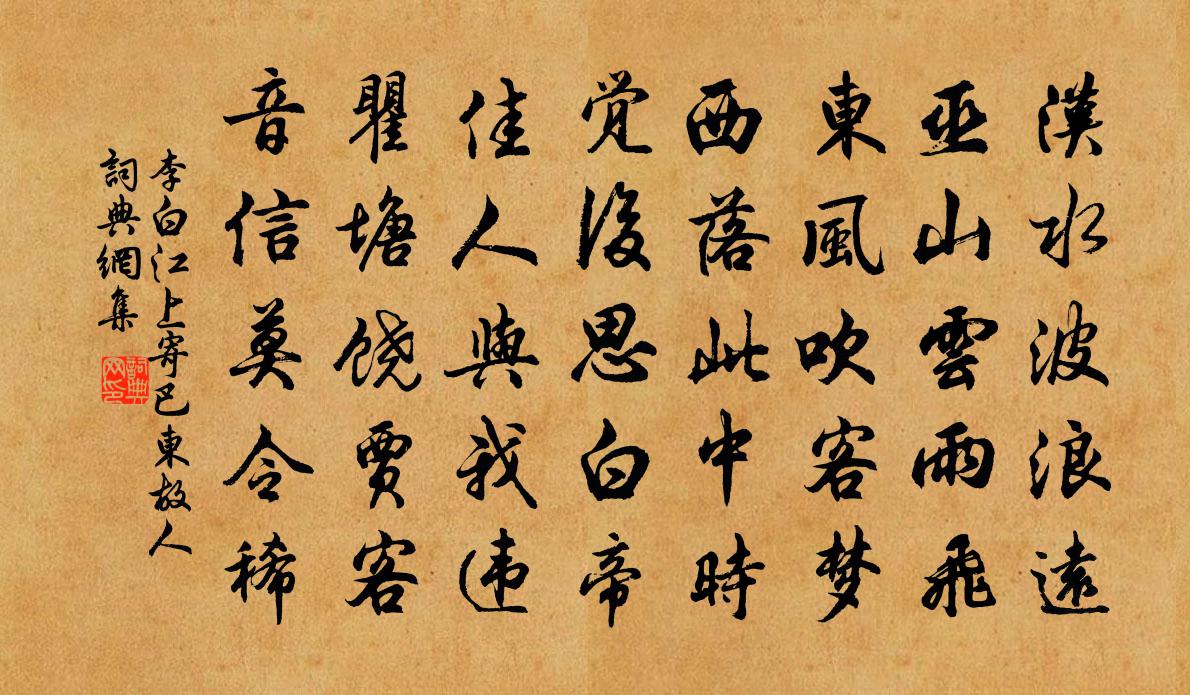 漢水波浪遠
巫山雲雨飛
東風吹客梦
西落此中時
覚後思白帝
佳人與我违
瞿塘饶賈客
音信莫令稀
李白江上寄巴東故人
詞典網集
詞典网印